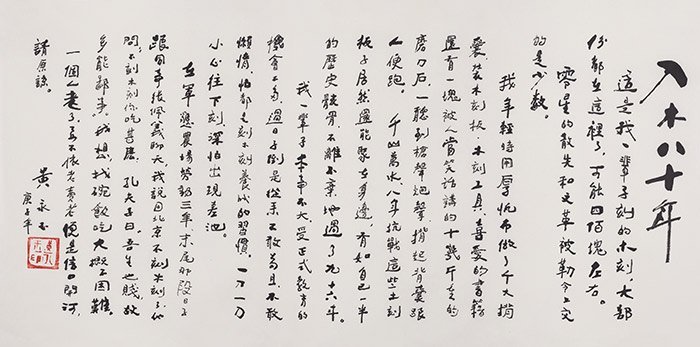 入木八十年
這是我一輩子刻的木刻，大部
份都在這裡了，可能四佰塊左右。
零星的散失和文革被勒令上交
的是少數。
我年輕時用厚帆布做了个大揹
囊裝木刻板，木刻工具，喜愛的書籍
還有一塊被人當笑話講的十幾斤重的
磨刀石，一聽到槍聲炮聲，揹起背囊跟
人便跑。千山萬水八年抗戰這些木刻
板子居然還能聚在身邊，有如自己一半
的歷史骸骨，不離不棄地過了九十六年。
我一輩子本事不大，受正式教育的
機會不多，過日子倒是從來不敢苟且，不敢
懶惰，怕都是刻木刻養成的習慣，一刀一刀
小心往下刻，深怕出現差池。
在軍墾農場勞動三年末尾那段日子
跟同事張佩義聊天，我說回北京不刻木刻了，他
問：不刻木刻你吃甚麼，孔夫子曰：吾生也賤，故
多能鄙事，我想，找碗飯吃大概不困難。
一個人老了，要不依老賣老便是信口開河，
請原諒。
黃永玉
庚子年